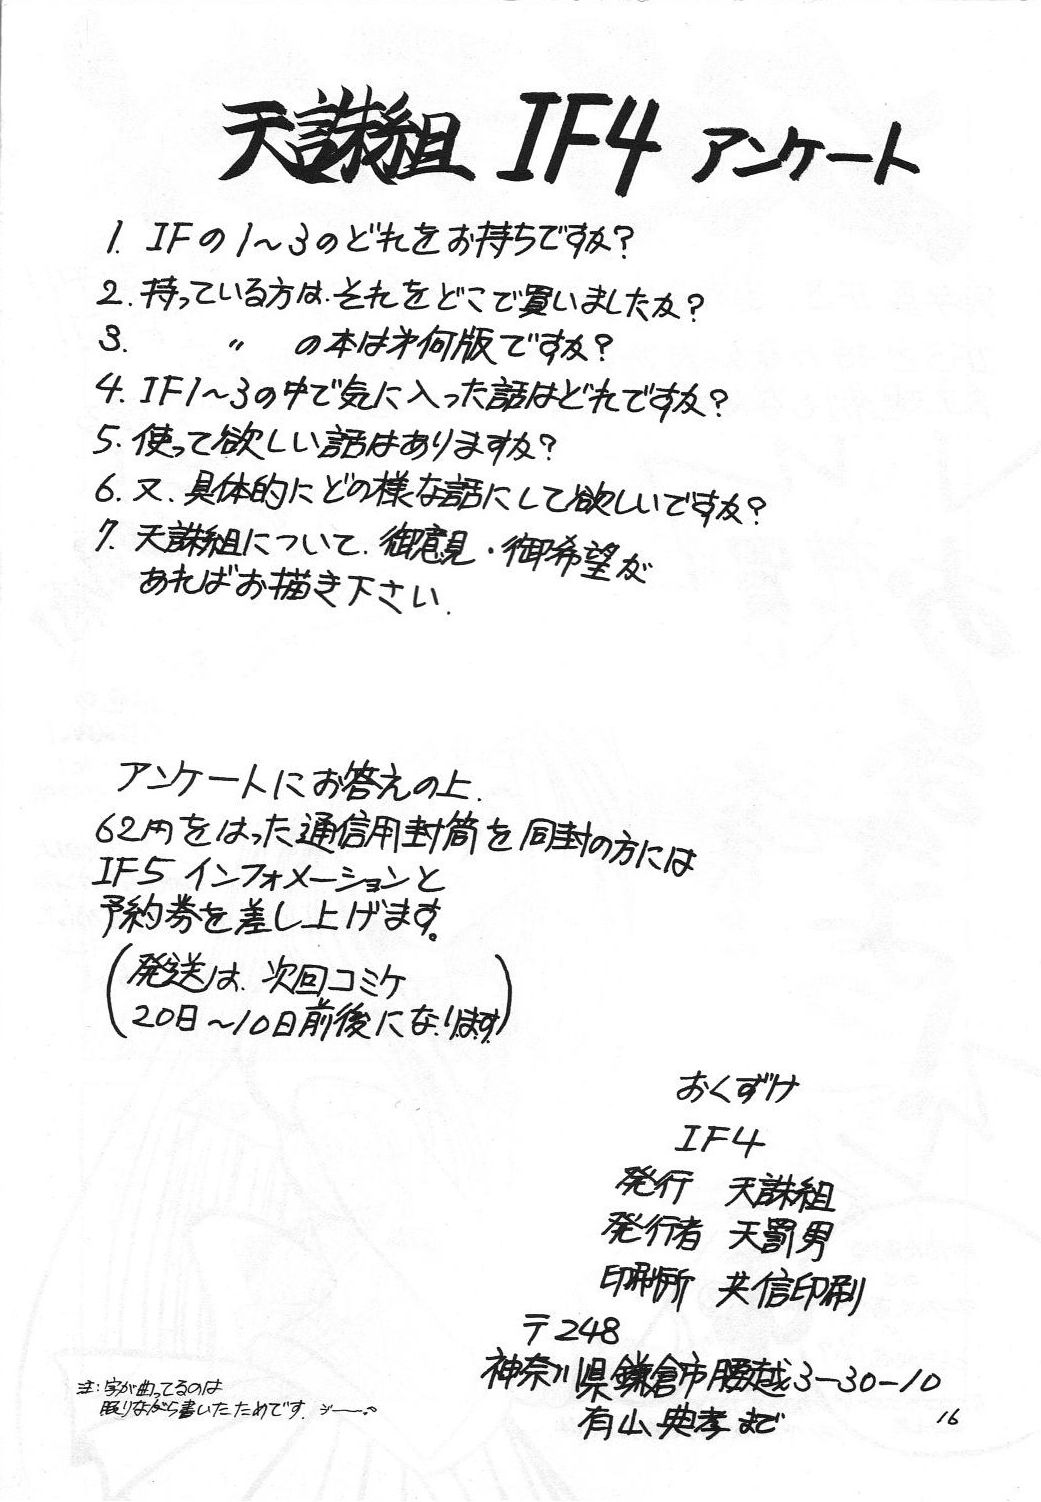 天誅組 IF4 アンケート
1. IFの1〜3のどれをお持ちですか?
2. 持っている方は、それをどこで買いましたか?
3. 〃 の本は才何版ですか?
4. IF1〜3の中で気に入った話はどれですか?
5. 使って欲しい話はありますか?
6. 又、具体的にどの様な話にして欲しいですか?
7. 天誅組について、御意見・御希望が
あればお描き下さい.
アンケートにお答えの上、
62円をはった通信用封筒を同封の方には
IF5 インフォメーションと
予約券を差し上げます。
(発送は、次回コミケ
20日〜10日前後になります)
おくずけ
IF4
発行 天誅組
発行者 天罰男
印刷所 共信印刷
〒248
神奈川県鎌倉市腰越3-30-10
有山典孝まで
注:字が曲ってるのは
眠りながら書いたためです.
16